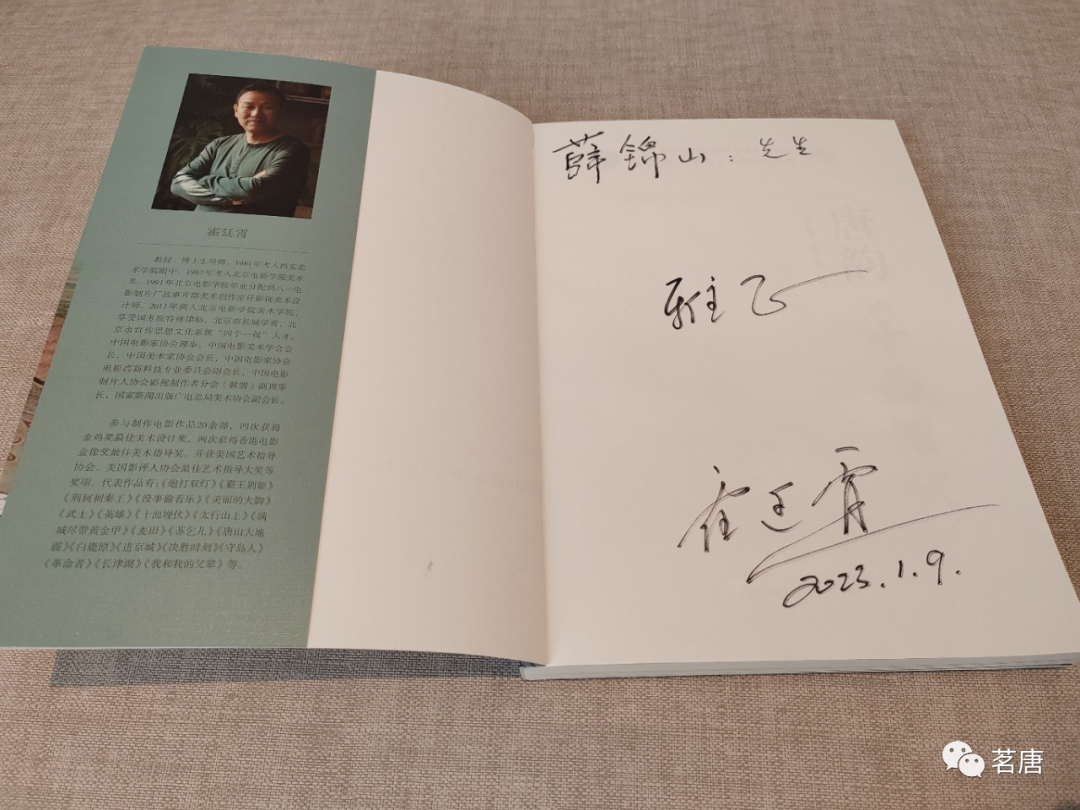 霍廷霄
教授、博士生导师。1981年考入西安美
术学院附中,1987年考入北京电影学院美术
系,1991年北京电影学院毕业分配到八一电
影制片厂故事片部美术创作室任影视美术设
计师。2011年调入北京电影学院美术学院,
享受国务院特殊津贴,北京市长城学者,北
京市宣传思想文化系统“四个一批”人才。
中国电影家协会理事,中国电影美术学会会
长,中国美术家协会会员,中国电影家协会
电影高新科技专业委员会副会长,中国电影
制片人协会影视制作者分会(联盟)副理事
长,国家新闻出版广电总局美术协会副会长。
参与制作电影作品20余部,四次获得
金鸡奖最佳美术设计奖,两次获得香港电影
金像奖最佳美术指导奖。并获美国艺术指导
协会、美国影评人协会最佳艺术指导大奖等
奖项。代表作品有:《炮打双灯》《霸王别姬》
《荆轲刺秦王》《没事偷着乐》《美丽的大脚》
《武士》《英雄》《十面埋伏》《太行山上》《满
城尽带黄金甲》《麦田》《苏乞儿》《唐山大地
震》《白鹿原》《进京城》《决胜时刻》《守岛人》
《革命者》《长津湖》《我和我的父辈》等。
薛锦山:先生
雅正
霍廷霄
2023.1.9.
茗唐